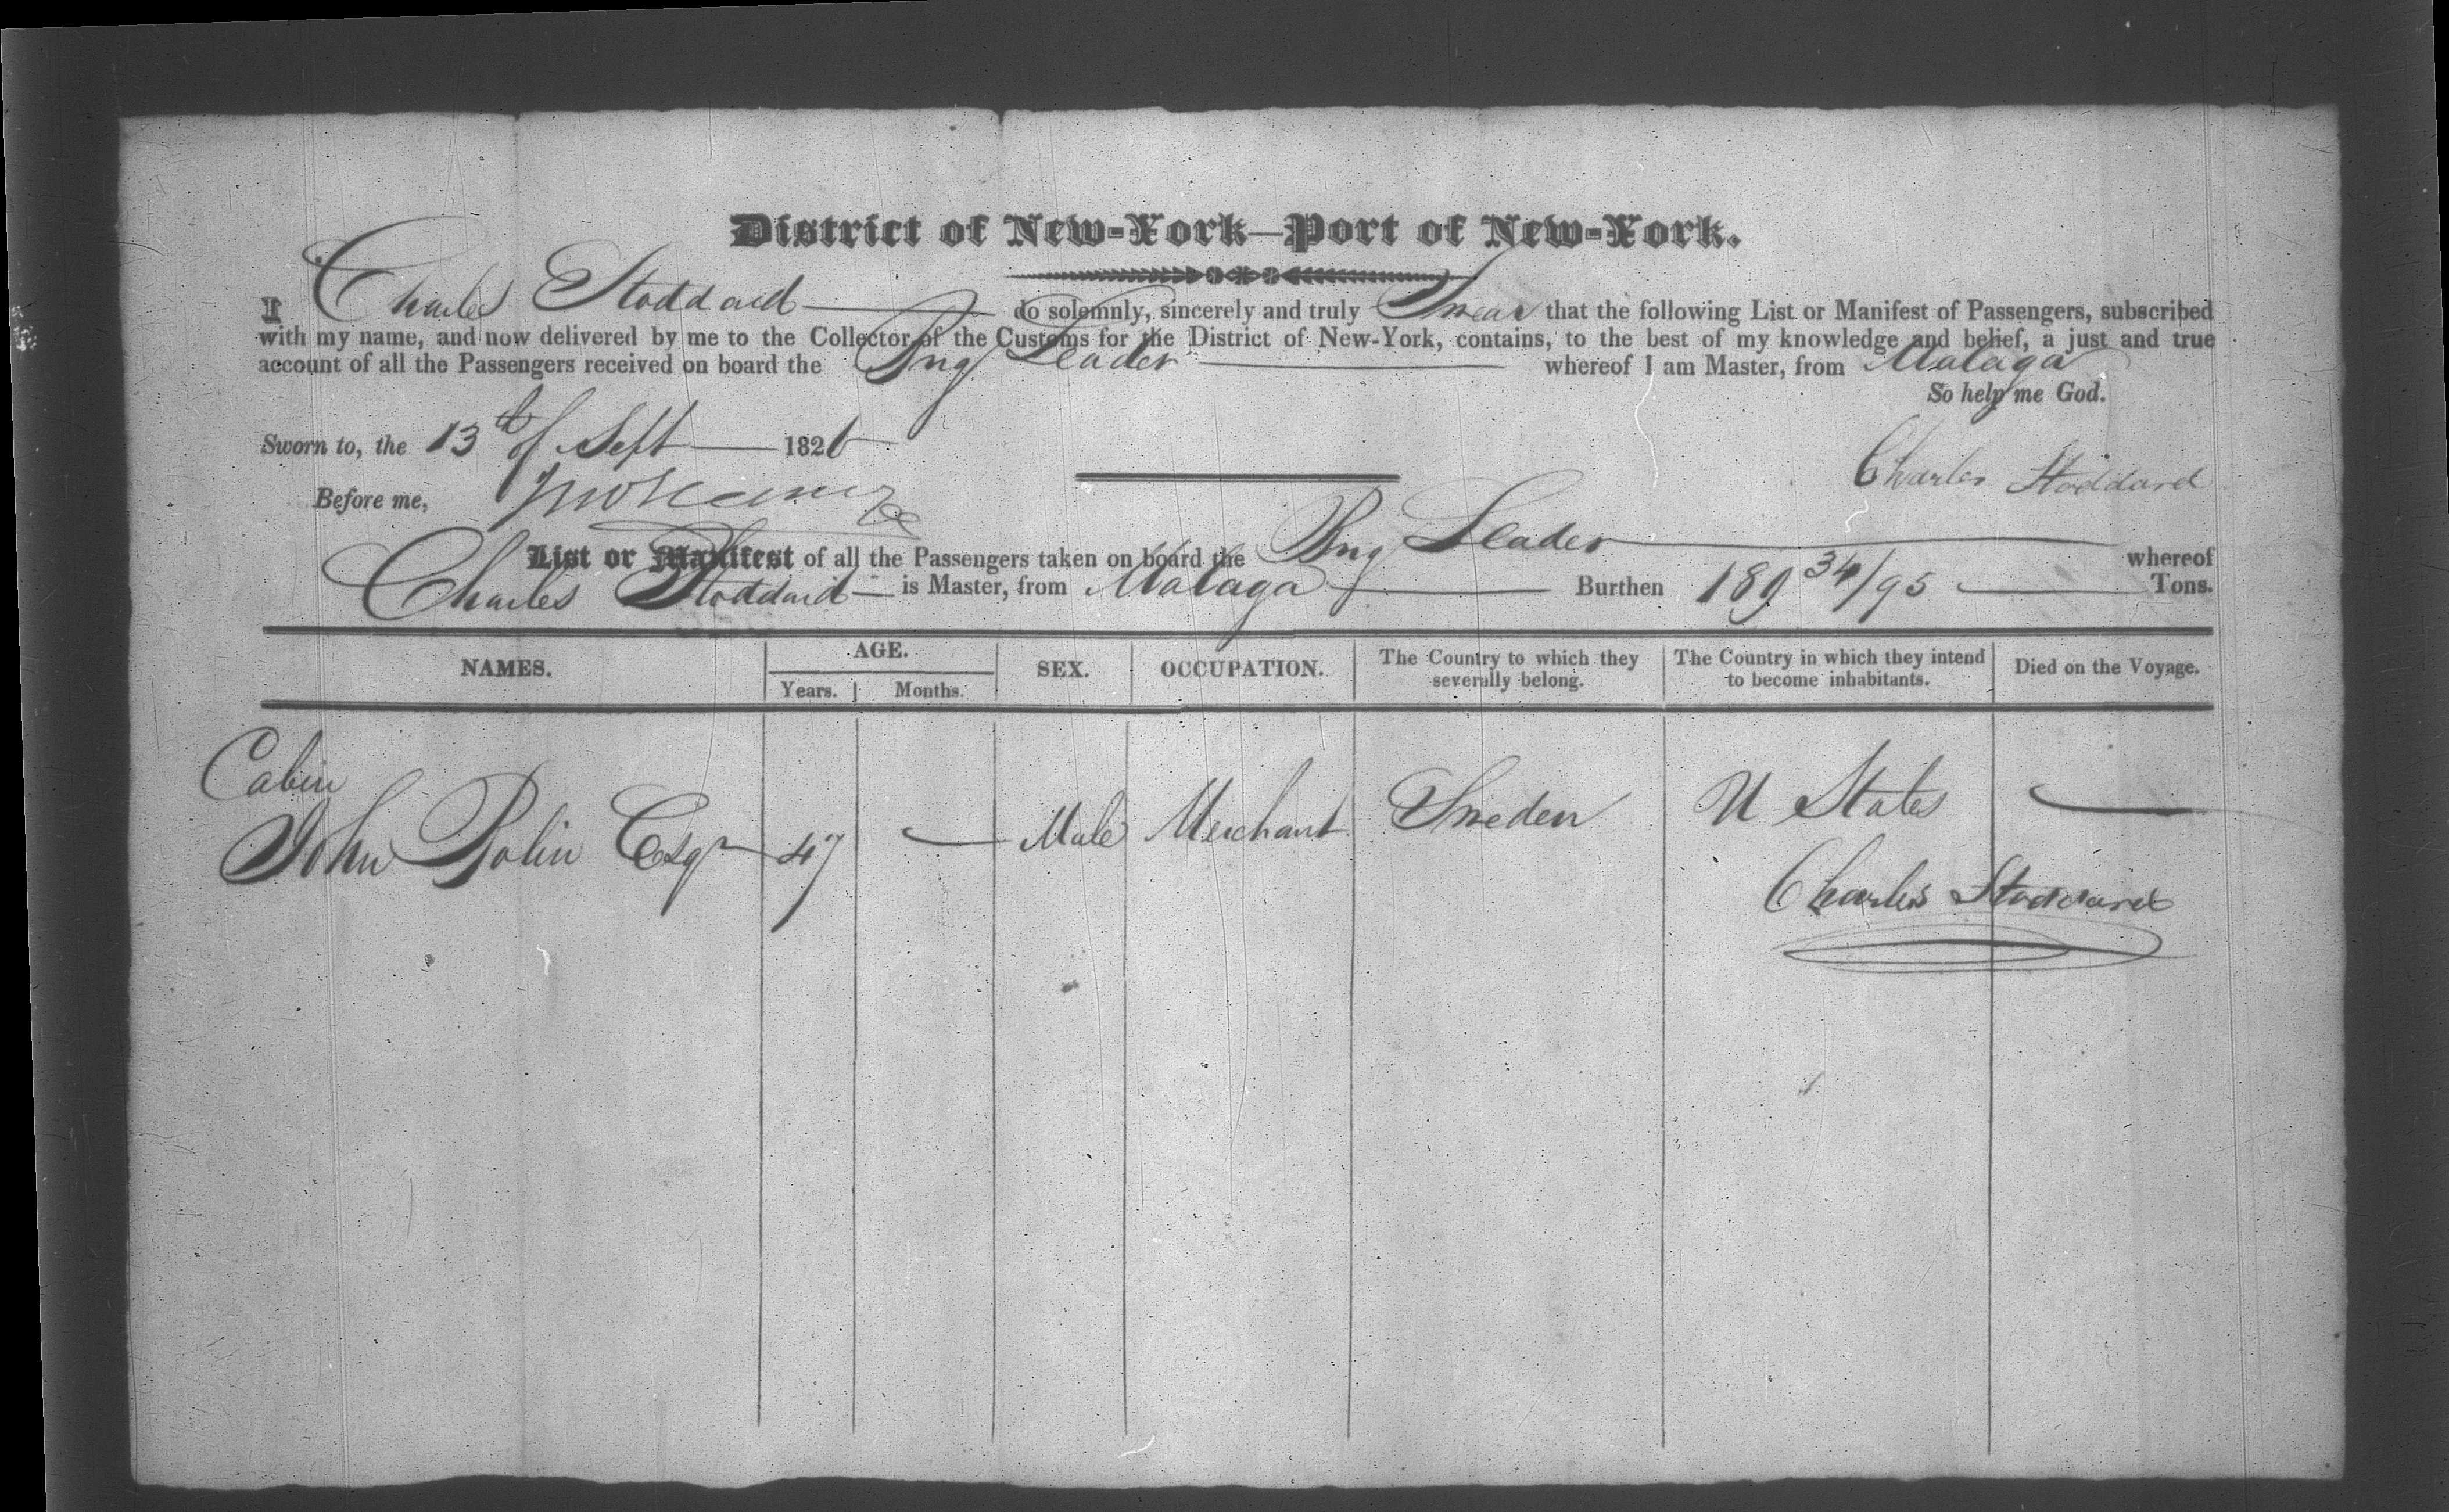 District of New-York—Port of New-York.
I Charles Stoddard do solemnly, sincerely and truly Swear that the following List or Manifest of Passengers, subscribed
with my name, and now delivered by me to the Collector of the Customs for the District of New-York, contains, to the best of my knowledge and belief, a just and true
account of all the Passengers received on board the Brig Leader whereof I am Master, from Malaga
So help me God.
Sworn to, the 13th of Sept 1826
Charles Stoddard
Before me,
List or Manifest of all the Passengers taken on board the Brig Leader whereof
Charles Stoddard is Master, from Malaga Burthen 189 34/95 Tons.
NAMES. AGE. SEX. OCCUPATION. The Country to which they severally belong. The Country in which they intend to become inhabitants. Died on the Voyage.
Years. Months.
Cabin
John Bolin Esqr 47 — Male Merchant Sweden U States —
Charles Stoddard